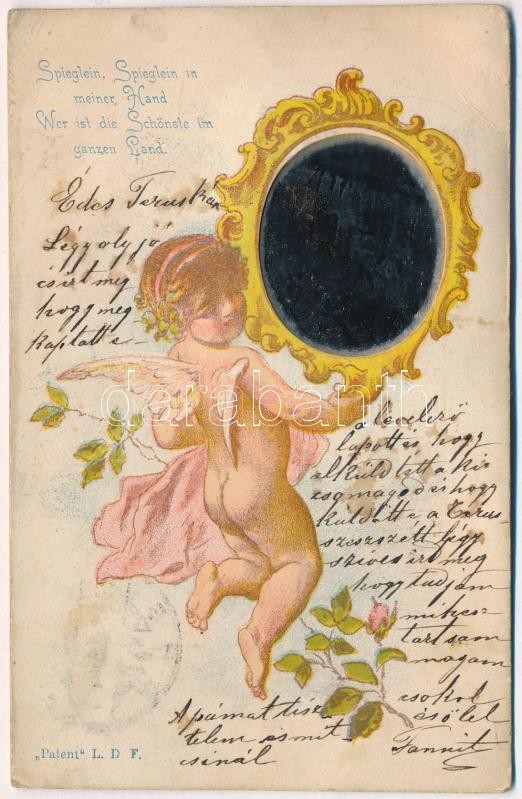 Spieglein, Spieglein in
meiner Hand
Wer ist die Schönste im
ganzen Land.
Édes Teruskám
Légy oly jó
csirt meg
hogy meg
kaptatt e
a levelező
lapott és hogy
elküldtétt a kis
csomagod és hogy
küldötte a Terus
szívesirt meg
hogy tudjam
mihez
tartsam
magam
csokol
és ölel
Fannit
A pámat tisz
telem es mit
csinál
darabanth
„Patent" L. D F.